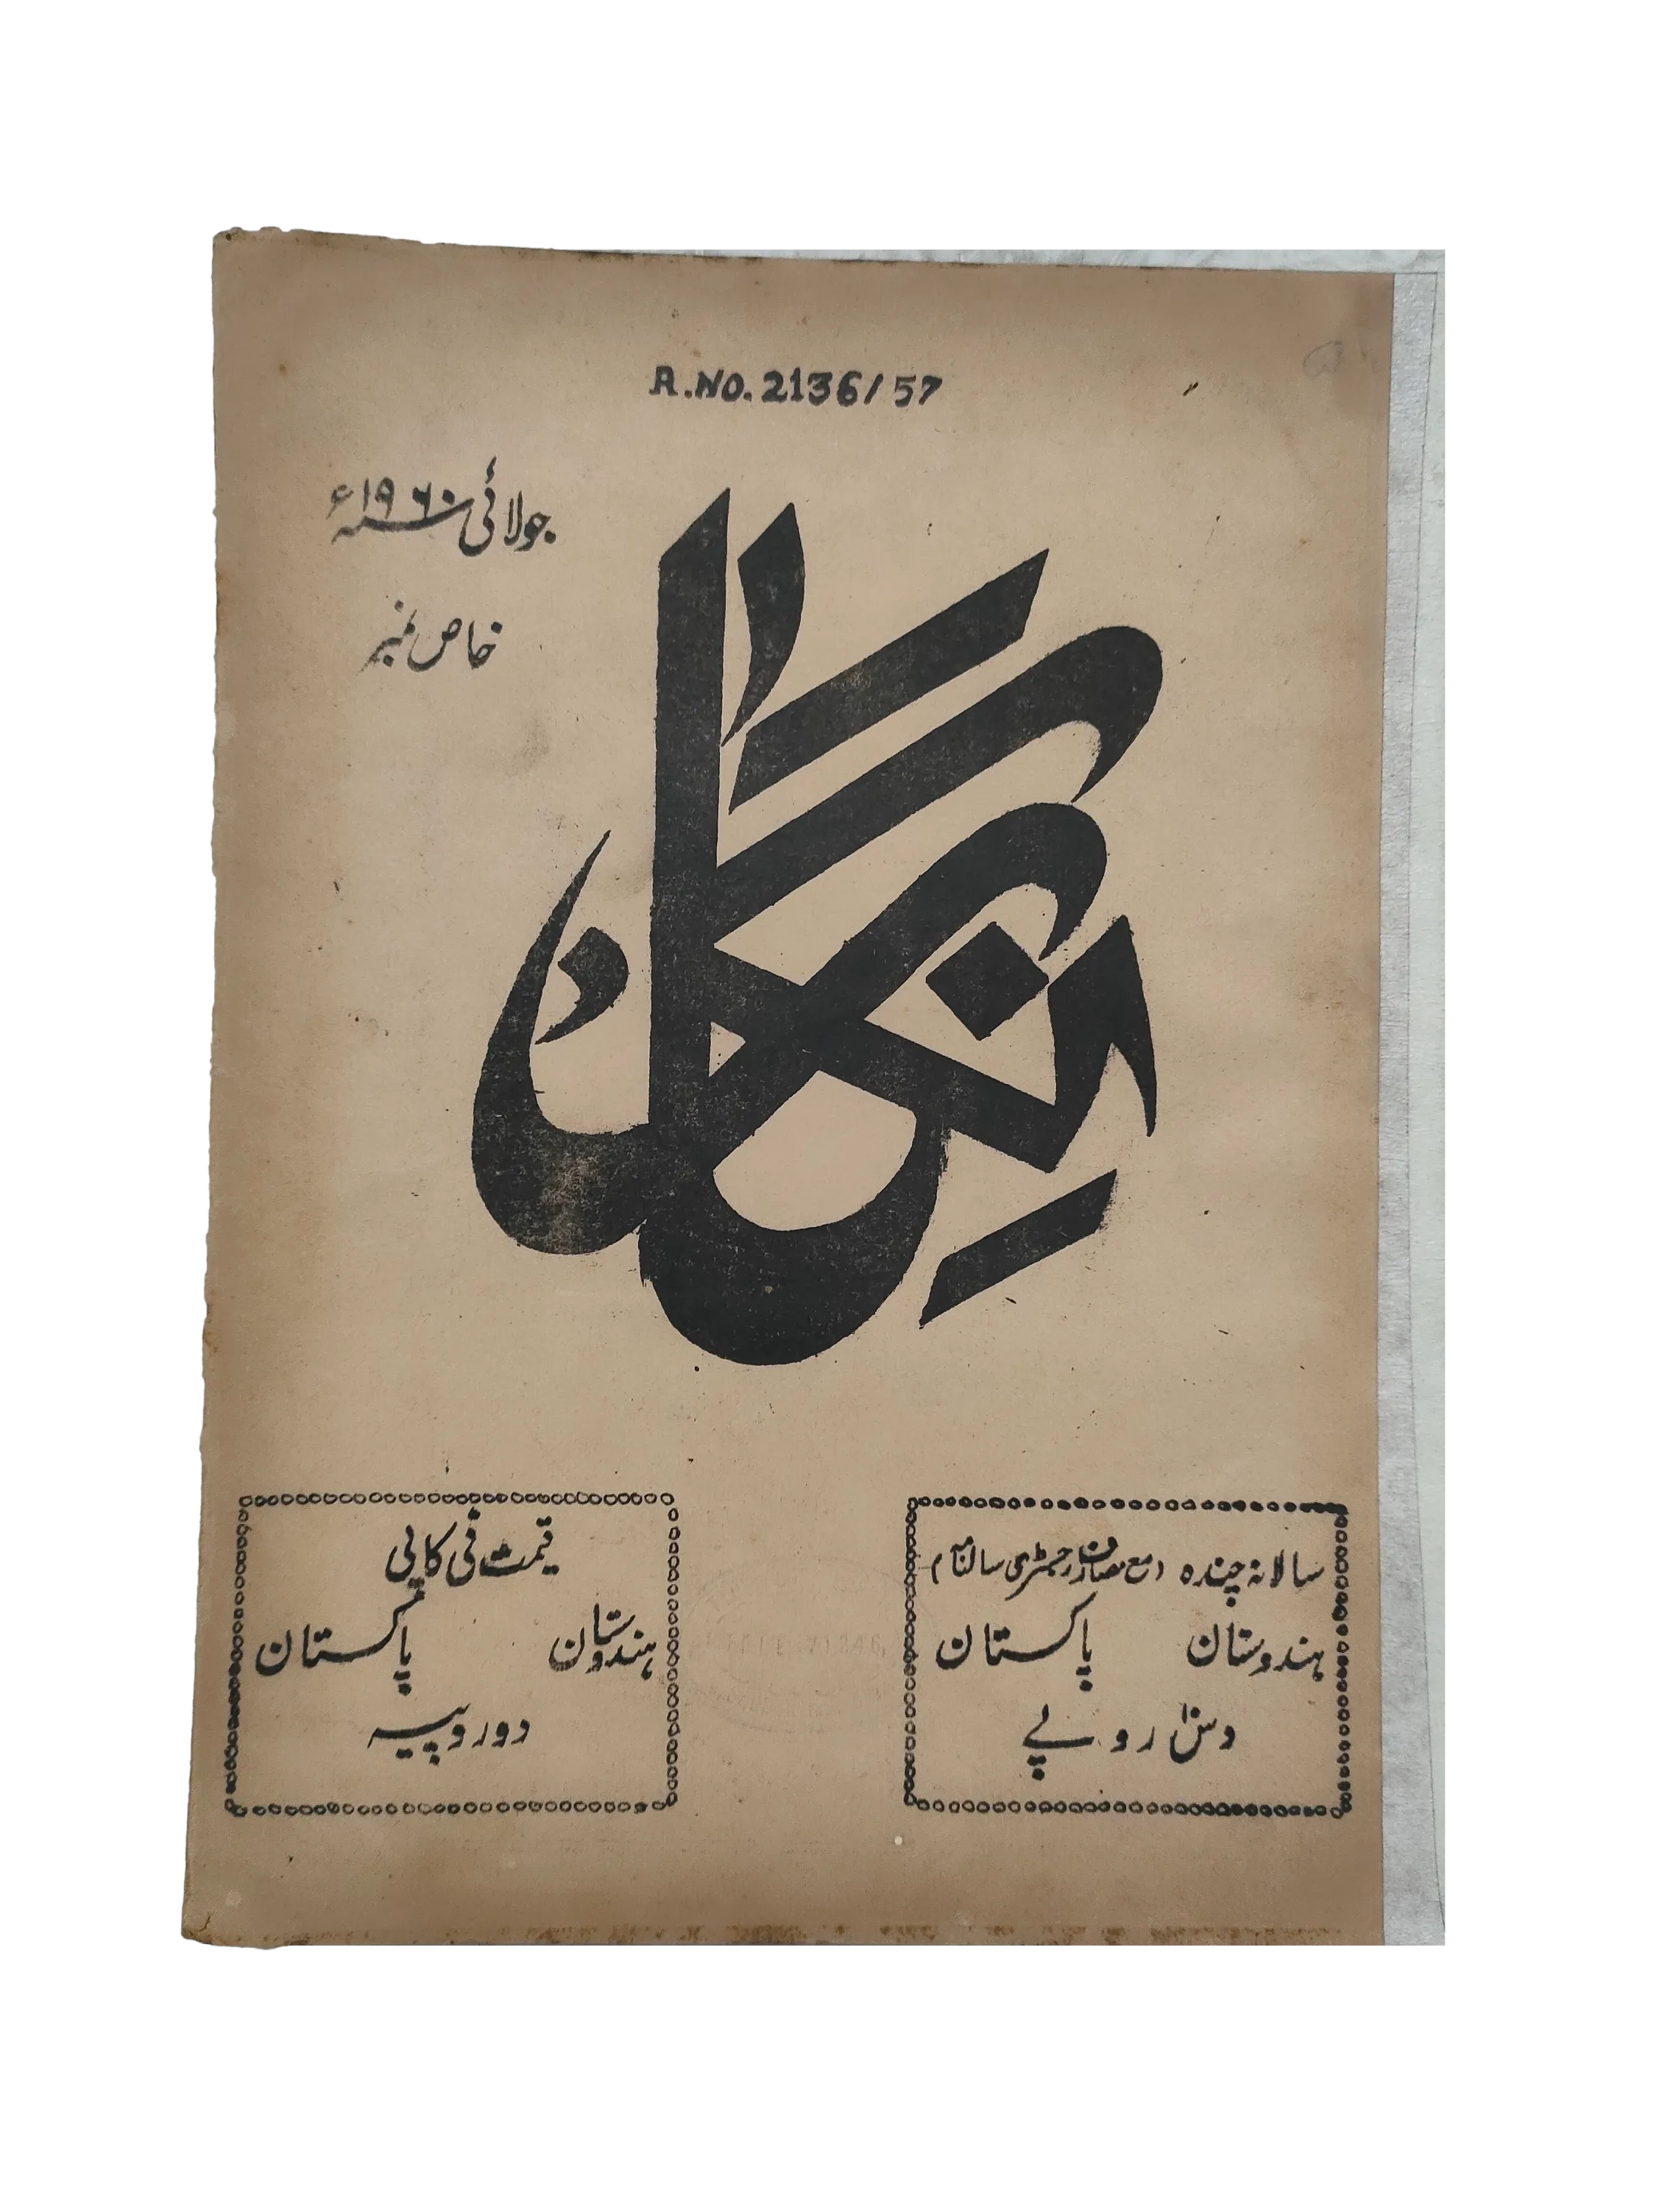 R.NO. 2136/57
جولائی سنہ ۱۹۶۰ء
خاص نمبر
نگار
سالانہ چندہ (مع مصارف رجسٹری سالنامہ)
ہندوستان پاکستان
دس روپے
قیمت فی کاپی
ہندوستان پاکستان
دو روپیہ